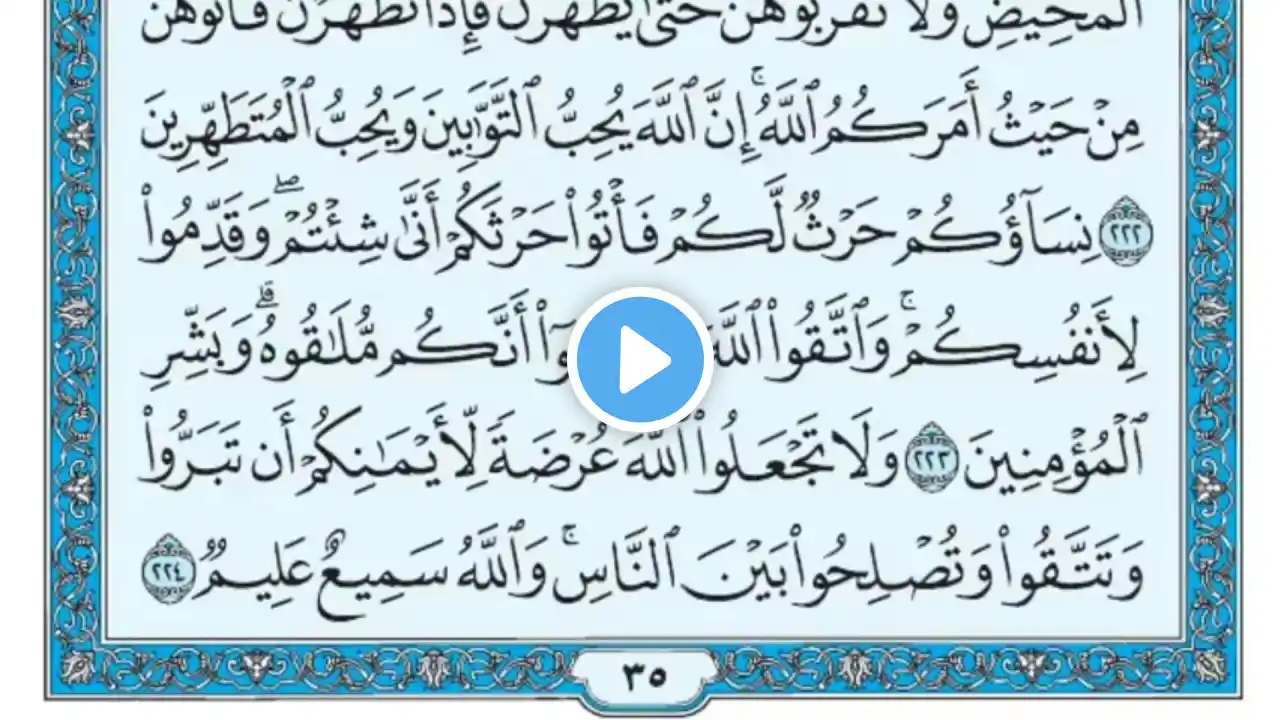 ٱلْمَحِيضِ وَلَا تَقْرَبُوهُنَّ حَتَّىٰ يَطْهُرْنَ فَإِذَا تَطَهَّرْنَ فَأْتُوهُنَّ
مِنْ حَيْثُ أَمَرَكُمُ ٱللَّهُ ۚ إِنَّ ٱللَّهَ يُحِبُّ ٱلتَّوَّٰبِينَ وَيُحِبُّ ٱلْمُتَطَهِّرِينَ
٢٢٢ نِسَآؤُكُمْ حَرْثٌ لَّكُمْ فَأْتُوا۟ حَرْثَكُمْ أَنَّىٰ شِئْتُمْ ۖ وَقَدِّمُوا۟
لِأَنفُسِكُمْ ۚ وَٱتَّقُوا۟ ٱللَّهَ أَنَّكُم مُّلَٰقُوهُ ۗ وَبَشِّرِ
ٱلْمُؤْمِنِينَ ٢٢٣ وَلَا تَجْعَلُوا۟ ٱللَّهَ عُرْضَةً لِّأَيْمَٰنِكُمْ أَن تَبَرُّوا۟
وَتَتَّقُوا۟ وَتُصْلِحُوا۟ بَيْنَ ٱلنَّاسِ ۚ وَٱللَّهُ سَمِيعٌ عَلِيمٌ ٢٢٤
٣٥